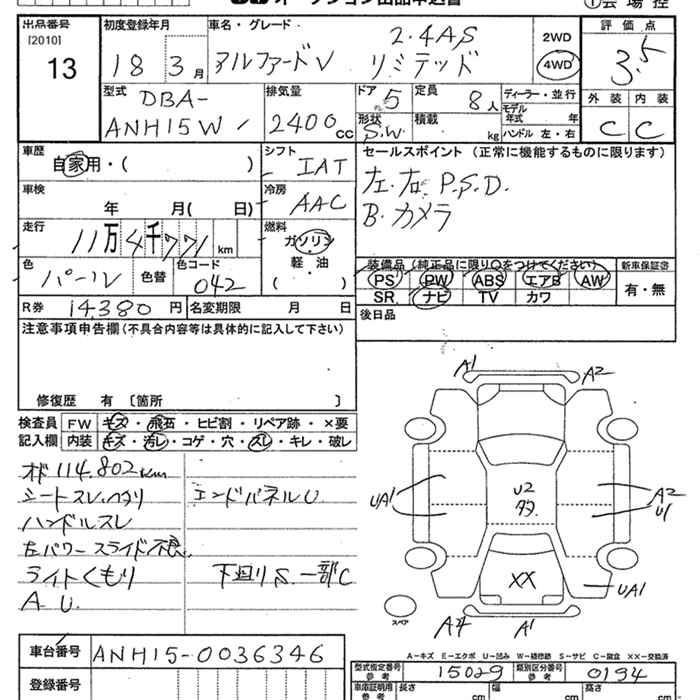 オークション出品申込書
①会場控
出品番号 [2010] 13
初度登録年月 18 3月
車名・グレード アルファードV 2.4AS リミテッド
2WD 4WD
評価点 3.5
外装 内装
C C
型式 DBA-ANH15W
排気量 2400cc
ドア 5
形状 S.W
定員 8人
積載 kg
ディーラー・並行
モデル年式 年
ハンドル 左・右
車歴 自家用・( )
シフト IAT
車検 年 月( 日)
冷房 AAC
走行 11万4千771km
燃料 ガソリン 軽・油 ( )
色 パール 色替
色コード 042
R券 14,380円
名変期限 月 日
セールスポイント(正常に機能するものに限ります)
左.右.P.S.D.
B.カメラ
装備品(純正品に限り○をつけてください)
PS PW ABS エアB AW
SR ナビ TV カワ
新車保証書 有・無
後日品
注意事項申告欄(不具合内容等は具体的に記入して下さい)
修復歴 有〔箇所 〕
検査員記入欄
FW キズ・飛石・ヒビ割・リペア跡・×要
内装 キズ・汚レ・コゲ・穴・スレ・キレ・破レ
オド114.802km
シートスレ.ヘタリ
エンドパネルU
ハンドルスレ
左パワースライド不良
ライトくもり
下廻りS.一部C
A.U.
A1 A2
UA1
U2
タタ
A2
U1
XX
UA1
スペア
A4 A1
A-キズ E-エクボ U-凹み W-補修跡 S-サビ C-腐食 XX-交換済
車台番号 ANH15-0036346
型式指定番号 参考 15029
類別区分番号 参考 0194
登録番号
車庫証明用 参考 長さ cm 幅 cm 高さ cm